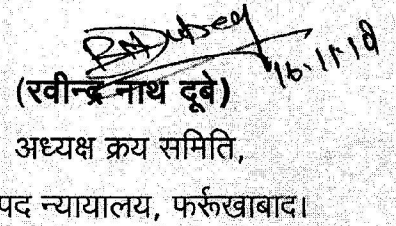 RNDubey
16.11.19
(रवीन्द्र नाथ दूबे)
अध्यक्ष क्रय समिति,
पद न्यायालय, फर्रूखाबाद।